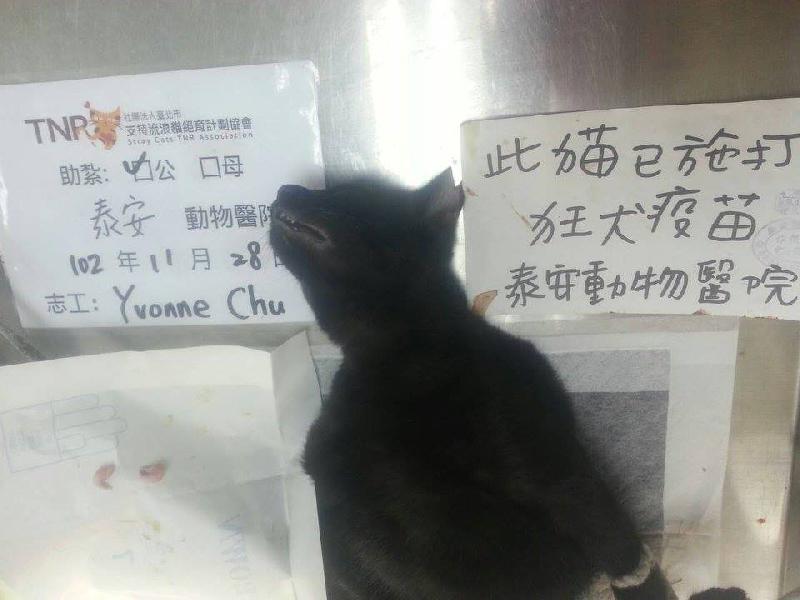 TNR 社團法人臺北市
支持流浪貓絕育計劃協會
Stray Cats TNR Association
助紮: ☑公 ☐母
泰安 動物醫院
102 年 11 月 28 日
志工: Yvonne Chu
此猫已施打
狂犬疫苗
泰安動物醫院